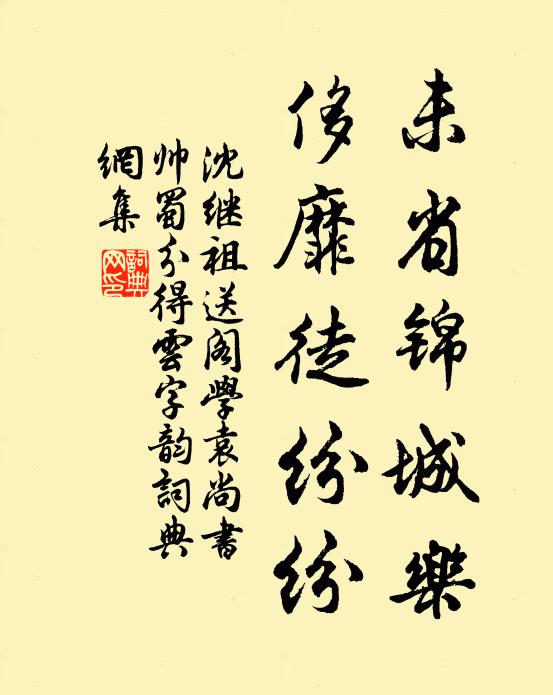 未省锦城樂
侈靡徒纷纷
沈继祖送阁學袁尚書
帅蜀分得雲字韵詞典
網集
詞典
网印